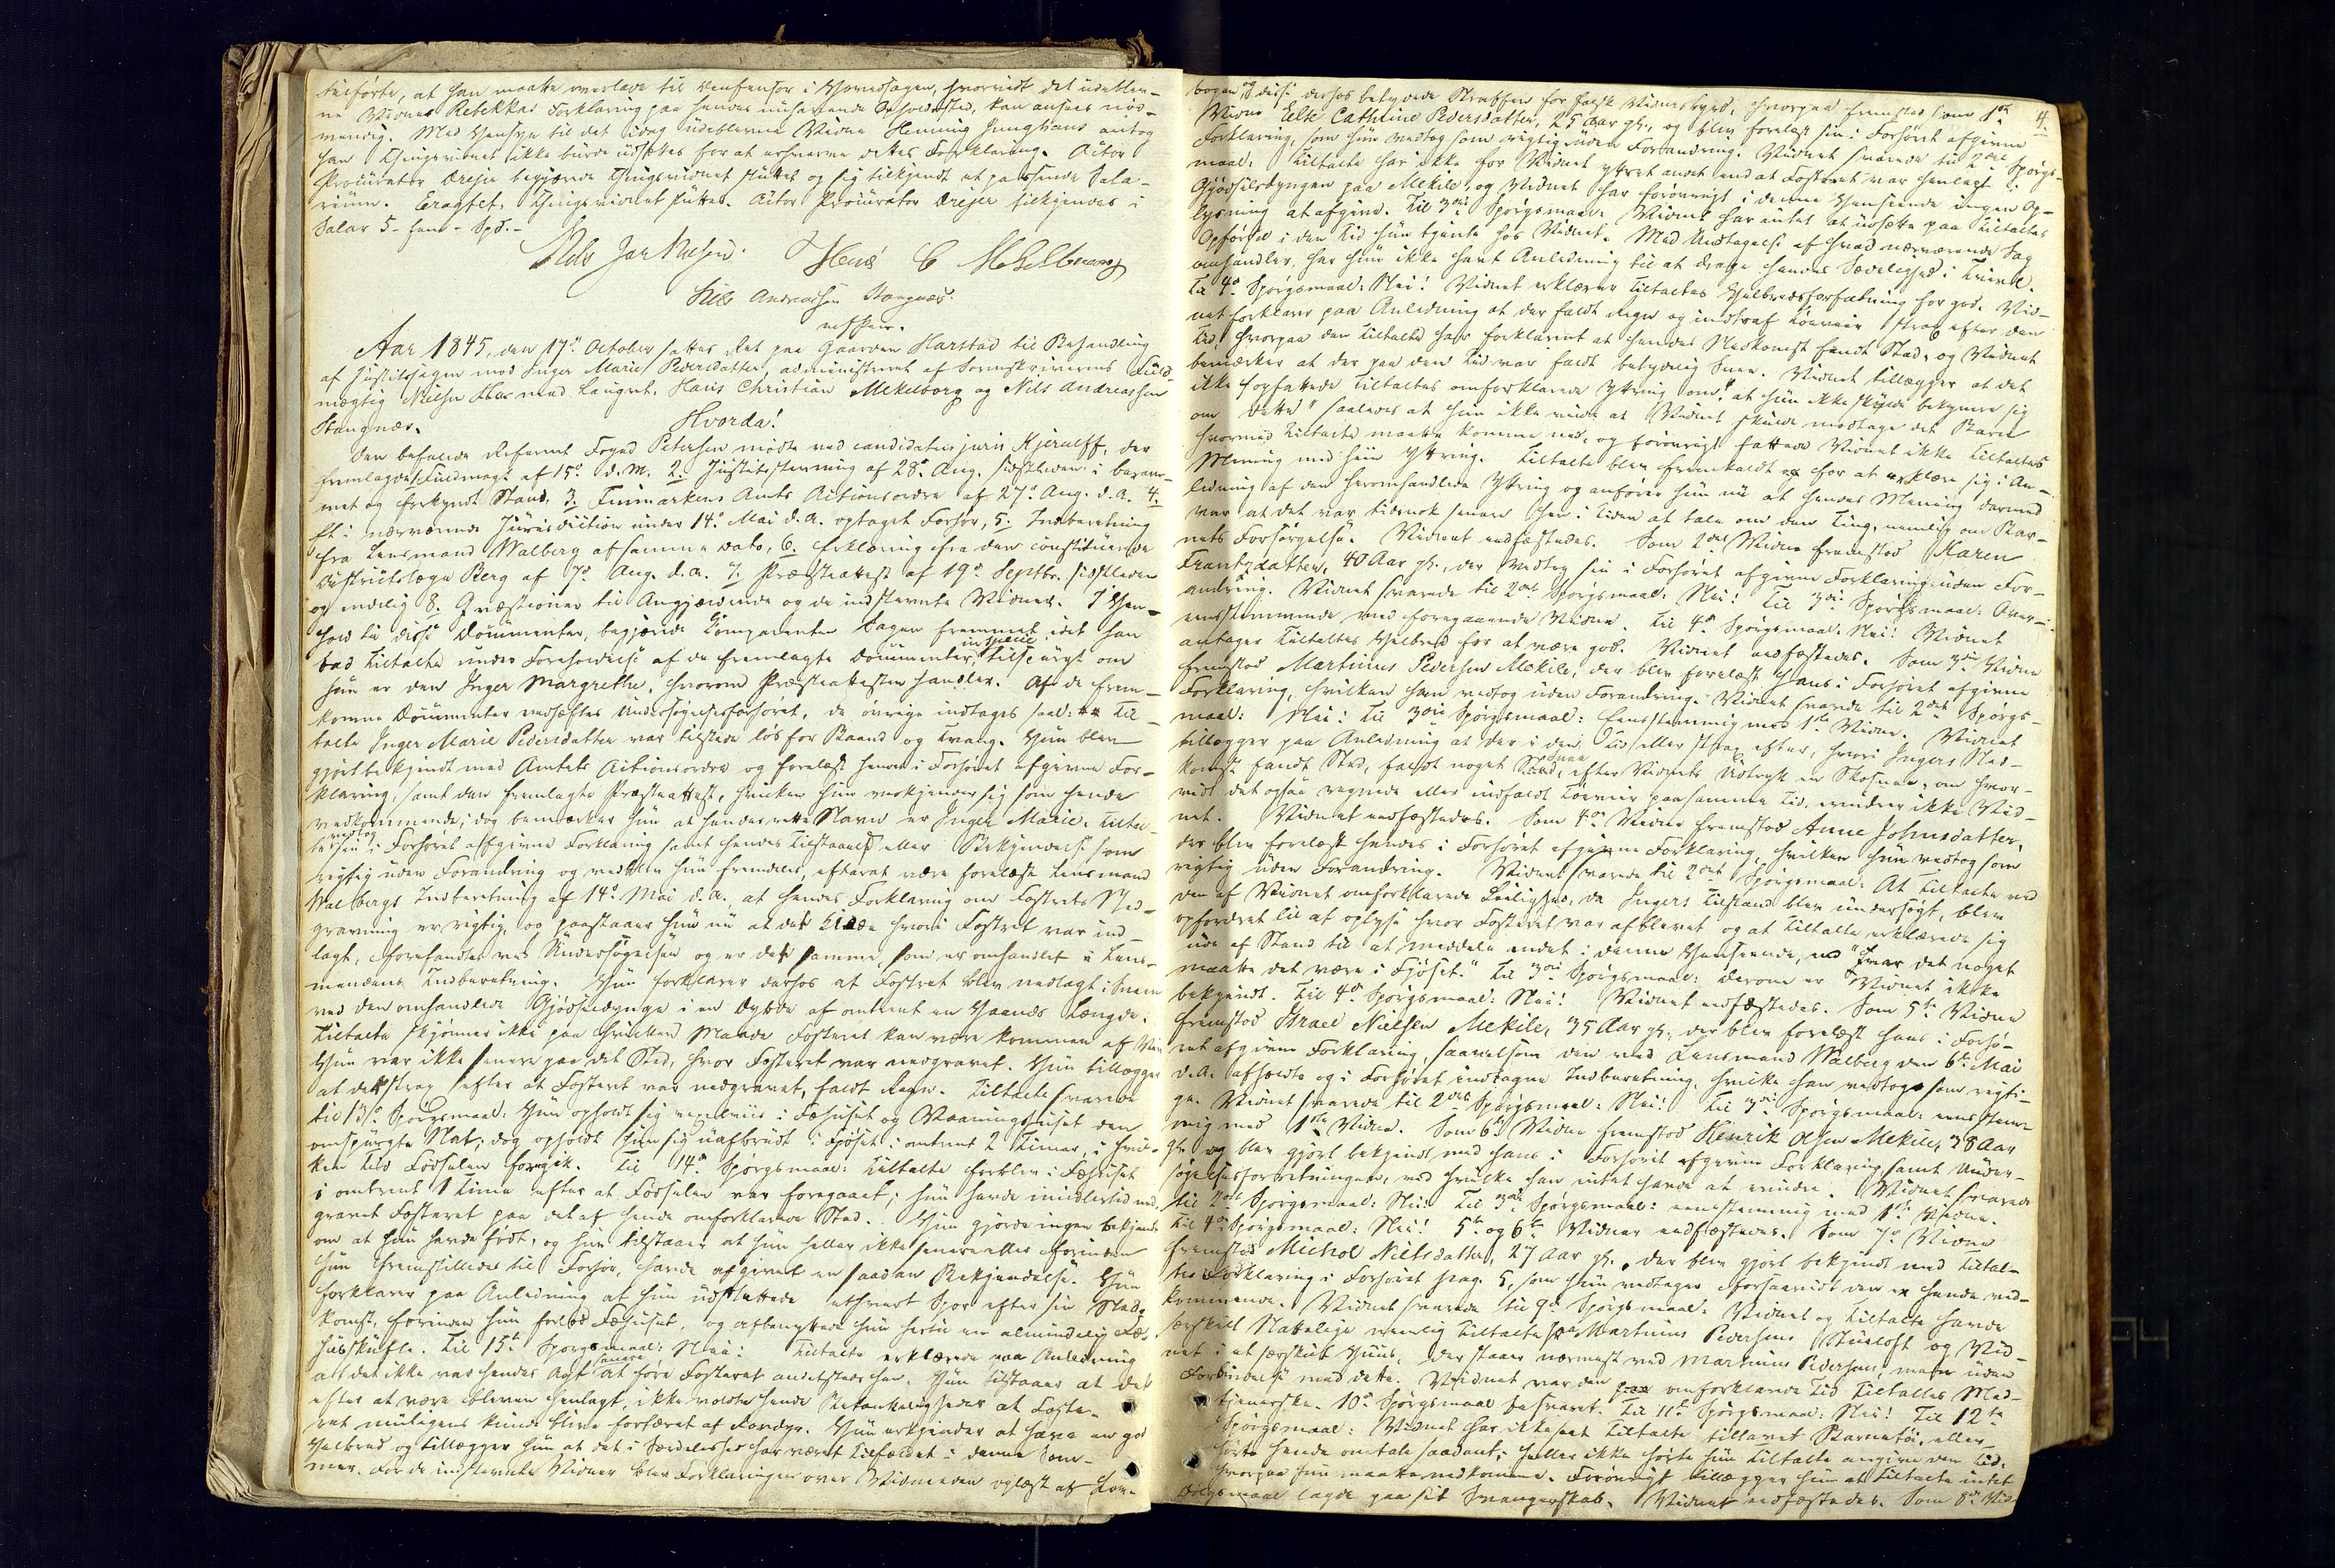 tilførte, at han maatte overlade til Defensor i Hovedsagen, hvorvidt det udeblev-
ne Vidnes Rebekkas Forklaring paa hendes nuhavende Opholdssted, kan ansees nød-
vendig. Med Hensyn til det idag udeblevne Vidne Henning Junghans antog
han Thingsvidnet ikke burde udsættes for at erhverve dettes Forklaring. Actor
Procurator Dreyer begjærede Thingsvidnet sluttet og sig tilkjendt et passende Sala-
rium. Eragtet: Thingsvidnet sluttes. Actor Procurator Dreyer tilkjendes i
Salar 5 - fem - Spd. -
Hans C Mekelborg
Nils Andreassen Stangnæs.
Aar 1845, den 17de October sattes Ret paa Gaarden Harstad til Behandling
af Justitssagen mod Inger Marie Pedersdatter, administreret af Sorenskriverens Fuld-
mægtig Nielsen med Laugret: Hans Christian Mekelborg og Nils Andreassen
Stangnæs. Hvorda!
Den befalede Referent Foged Petersen mødte ved candidatus juris Kjerulff, der
fremlagde 1. Fuldmagt af 15de d. M. 2. Justitsstevning af 28de Aug. sidstleden i beram-
met og forkyndt Stand, 3. Finmarkens Amts Actionsordre af 27de Aug. d. A. 4.
Et i nærværende Jurisdiction under 14de Mai d. A. optaget Forhør, 5. Indberetning
fra Lensmand Walberg af samme Dato, 6. Erklæring fra den constituerede
Districtslæge Berg af 7de Aug. d. A. 7. Præsteattest af 19de Septbr. sidstleden
og endelig 8. Qvæstioner til Angjældende og de indstevnte Vidner. I Hen-
hold til disse Documenter, begjærede Comparenten Sagen fremmet, idet han
bad Tiltalte under Foreholdelse af de fremlagte Documenter, in specie tilspurgt om
hun er den Inger Margrethe, hvorom Præsteattesten handler. Af de frem-
komne Documenter vedhæftes Undersøgelsesforhøret, de øvrige indtages saal: Til-
talte Inger Marie Pedersdatter var tilstede løs for Baand og Tvang. Hun blev
gjort bekjendt med Amtets Actionsordre og forelæst hendes i Forhøret afgivne For-
klaring, samt den fremlagte Præsteattest, hvilken hun vedkjender sig som hende
vedkommende; dog bemærker hun at hendes rette Navn er Inger Marie. Tiltal-
te vedtog sin i Forhøret afgivne Forklaring samt hendes Tilstaaelse eller Bekjendelse som
rigtig uden Forandring og vedblev hun fremdeles, efterat være forelæst Lensmand
Walbergs Indberetning af 14de Mai d. A., at hendes Forklaring om Fostrets Ned-
gravning er rigtig, og paastaaer hun nu at det Klæde hvori Fostret var ind-
lagt, forefandtes ved Undersøgelsen og er det samme, som er omhandlet i Lens-
mandens Indberetning. Hun forklarer derhos at Fostret blev nedlagt i Sneen
ved den omhandlede Gjødseldynge i en Dybde af omtrent en Haands Længde.
Tiltalte skjønner ikke paa hvilken Maade Fosteret kan være kommen af
Hun var ikke senere paa det Sted, hvor Fosteret var nedgravet. Hun tillægger
at det strax efter at Fosteret var nedgravet, faldt Regn. Tiltalte svarede
til 13de Spørgsmaal: Hun opholdt sig vexelviis i Fæhuset og Vaaningshuset den
omspurgte Nat; dog opholdt hun sig uafbrudt i Fjøset i omtrent 2 Timer, i hvil-
ken Tid Fødselen foregik. Til 14de Spørgsmaal: Tiltalte forblev i Fæhuset
i omtrent 1 Time efter at Fødselen var foregaaet; hun havde imidlertid ned-
gravet Fosteret paa det af hende omforklarede Sted. Hun gjorde ingen bekjendt
om at hun havde født, og hun tilstaaer at hun heller ikke senere eller forinden
hun fremstilledes til Forhør, havde afgivet en saadan Bekjendelse. Hun
forklarer paa Anledning at hun udslettede ethvert Spor efter sin Ned-
komst, forinden hun forlod Fæhuset, og afbenyttede hun hertil en almindelig Fæ-
huusskuffe. Til 15de Spørgsmaal: Nei! Tiltalte erklærede paa Anledning
at det ikke var hendes Agt senere at føre Fosteret andetsteds hen. Hun tilstaaer at det
efter at være bleven henlagt, ikke voldte hende Betænkeligheder at Foste-
ret muligens kunde blive fortæret af Dovdyr. Hun erkjender at have en god
Helbred og tillægger hun at det i Særdeleshed har været Tilfældet i denne Som-
mer. For de indstevnte Vidner blev Forklaringen over Vidneeden oplæst af Lov-
4.
bogen og disse derhos betydede Straffen for falsk Vidnesbyrd, hvorpaa fremstod som 1ste
Vidne Elte Cathrine Pedersdatter, 25 Aar gl., og blev forelæst sin i Forhøret afgivne
Forklaring, som hun vedtog som rigtig uden Forandring. Vidnet svarede til 2det Spørgs-
maal: Tiltalte har ikke for Vidnet yttret andet end at Fosteret var henlagt i
Gjødseldyngen paa Mekile, og Vidnet har forøvrigt i denne Henseende ingen Op-
lysning at afgive. Til 3die Spørgsmaal: Vidnet har intet at udsætte paa Tiltaltes
Opførsel i den Tid hun tjente hos Vidnet. Med Undtagelse af hvad nærværende Sag
omhandler, har hun ikke havt Anledning til at drage hendes Sædelighed i Tvivl.
Til 4de Spørgsmaal: Nei! Vidnet erklærer Tiltaltes Helbredsforfatning for god. Vid-
net forklarer paa Anledning at der faldt Regn og indtraf Tøeveir strax efter den
Tid, hvorpaa den Tiltalte har forklaret at hendes Nedkomst fandt Sted, og Vidnet
bemærker at der paa den Tid var faldt betydelig Snee. Vidnet tillægger at det
ikke opfattede Tiltaltes omforklarede Yttring om: "at hun ikke skulde bekymre sig
om dette" saaledes at hun ikke vilde at Vidnet skulde modtage det Barn
hvormed Tiltalte maatte komme ned, og forøvrigt fattede Vidnet ikke Tiltaltes
Mening med hiin Yttring. Tiltalte blev fremkaldt for at erklære sig i An-
ledning af den heromhandlede Yttring og anfører hun nu at hendes Mening dermed
var at det var tidsnok senere hen i Tiden at tale om den Ting, nemlig om Bar-
nets Forsørgelse. Vidnet eedfæstedes. Som 2det Vidne fremstod Karen
Frantzdatter, 40 Aar gl., der vedtog sin i Forhøret afgivne Forklaring uden For-
andring. Vidnet svarede til 2det Spørgsmaal: Nei! Til 3die Spørgsmaal: Over-
eensstemmende med foregaaende Vidne. Til 4de Spørgsmaal: Nei! Vidnet
antager Tiltaltes Helbred for at være god. Vidnet eedfæstedes. Som 3die Vidne
fremstod Martinus Pedersen Mekile, der blev forelæst hans i Forhøret afgivne
Forklaring, hvilken han vedtog uden Forandring. Vidnet svarede til 2det Spørgs-
maal: Nei! Til 3die Spørgsmaal: Eensstemmig med 1ste Vidne. Vidnet
tillægger paa Anledning at der i den Tid eller strax efter, hvori Ingers Ned-
komst fandt Sted, faldt noget Snee, efter Vidnets Udtryk en Skosnee, om hvor-
vidt det ogsaa regnede eller indfaldt Tøeveir paa samme Tid, erindrer ikke Vid-
net. Vidnet eedfæstedes. Som 4de Vidne fremstod Anne Johnsdatter,
der blev forelæst hendes i Forhøret afgivne Forklaring, hvilken hun vedtog som
rigtig uden Forandring. Vidnet svarede til 2det Spørgsmaal: At Tiltalte ved
den af Vidnet omforklarede Leilighed, da Ingers Tilstand blev undersøgt, blev
opfordret til at oplyse hvor Fosteret var afblevet og at Tiltalte erklærede sig
ude af Stand til at meddele andet i denne Henseende, end "hvar det noget
maatte det være i Fjøset." Til 3die Spørgsmaal: derom er Vidnet ikke
bekjendt. Til 4de Spørgsmaal: Nei! Vidnet eedfæstedes. Som 5te Vidne
fremstod Israel Nielsen Mekile, 35 Aar gl., der blev forelæst hans i Forhø-
ret afgivne Forklaring, saavelsom den ved Lensmand Walberg den 6te Mai
d. A. afholdte og i Forhøret indtagne Indberetning, hvilke han vedtog som rigti-
ge. Vidnet svarede til 2det Spørgsmaal: Nei! Til 3die Spørgsmaal: eensstem-
mig med 1ste Vidne. Som 6te Vidne fremstod Henrik Olsen Mekile, 38 Aar
gl. og blev gjort bekjendt med hans i Forhøret afgivne Forklaring samt Under-
søgelsesforretningen, ved hvilke han intet havde at erindre. Vidnet svarede
til 2det Spørgsmaal: Nei! Til 3die Spørgsmaal: eensstemmig med 1ste Vidne.
Til 4de Spørgsmaal: Nei! 5te og 6te Vidner eedfæstedes. Som 7de Vidne
fremstod Michol Nielsdatter, 27 Aar gl., der blev gjort bekjendt med Tiltal-
tes Forklaring i Forhøret pag. 5, som hun vedtager forsaavidt den er hende ved-
kommende. Vidnet svarede til 9de Spørgsmaal: Vidnet og Tiltalte havde
særskilt Natteleie nemlig Tiltalte paa Martinus Pedersens Stueloft og Vid-
net i et særskilt Huus, der staaer nærmest ved Martinus Pedersens, men uden
Forbindelse med dette. Vidnet var den omforklarede Tid Tiltaltes Med-
tjenerske. 10de Spørgsmaal besvaret. Til 11te Spørgsmaal: Nei! Til 12te
Spørgsmaal: Vidnet har ikke seet Tiltalte tillavet Barnetøi, eller
hørt hende omtale saadant; heller ikke hørte hun Tiltalte angive den Tid,
hvorpaa hun maatte nedkomme. Forøvrigt tillægger hun at Tiltalte intet
Dølgsmaal lagde paa sit Svangerskab. Vidnet eedfæstedes. Som 8de Vid-